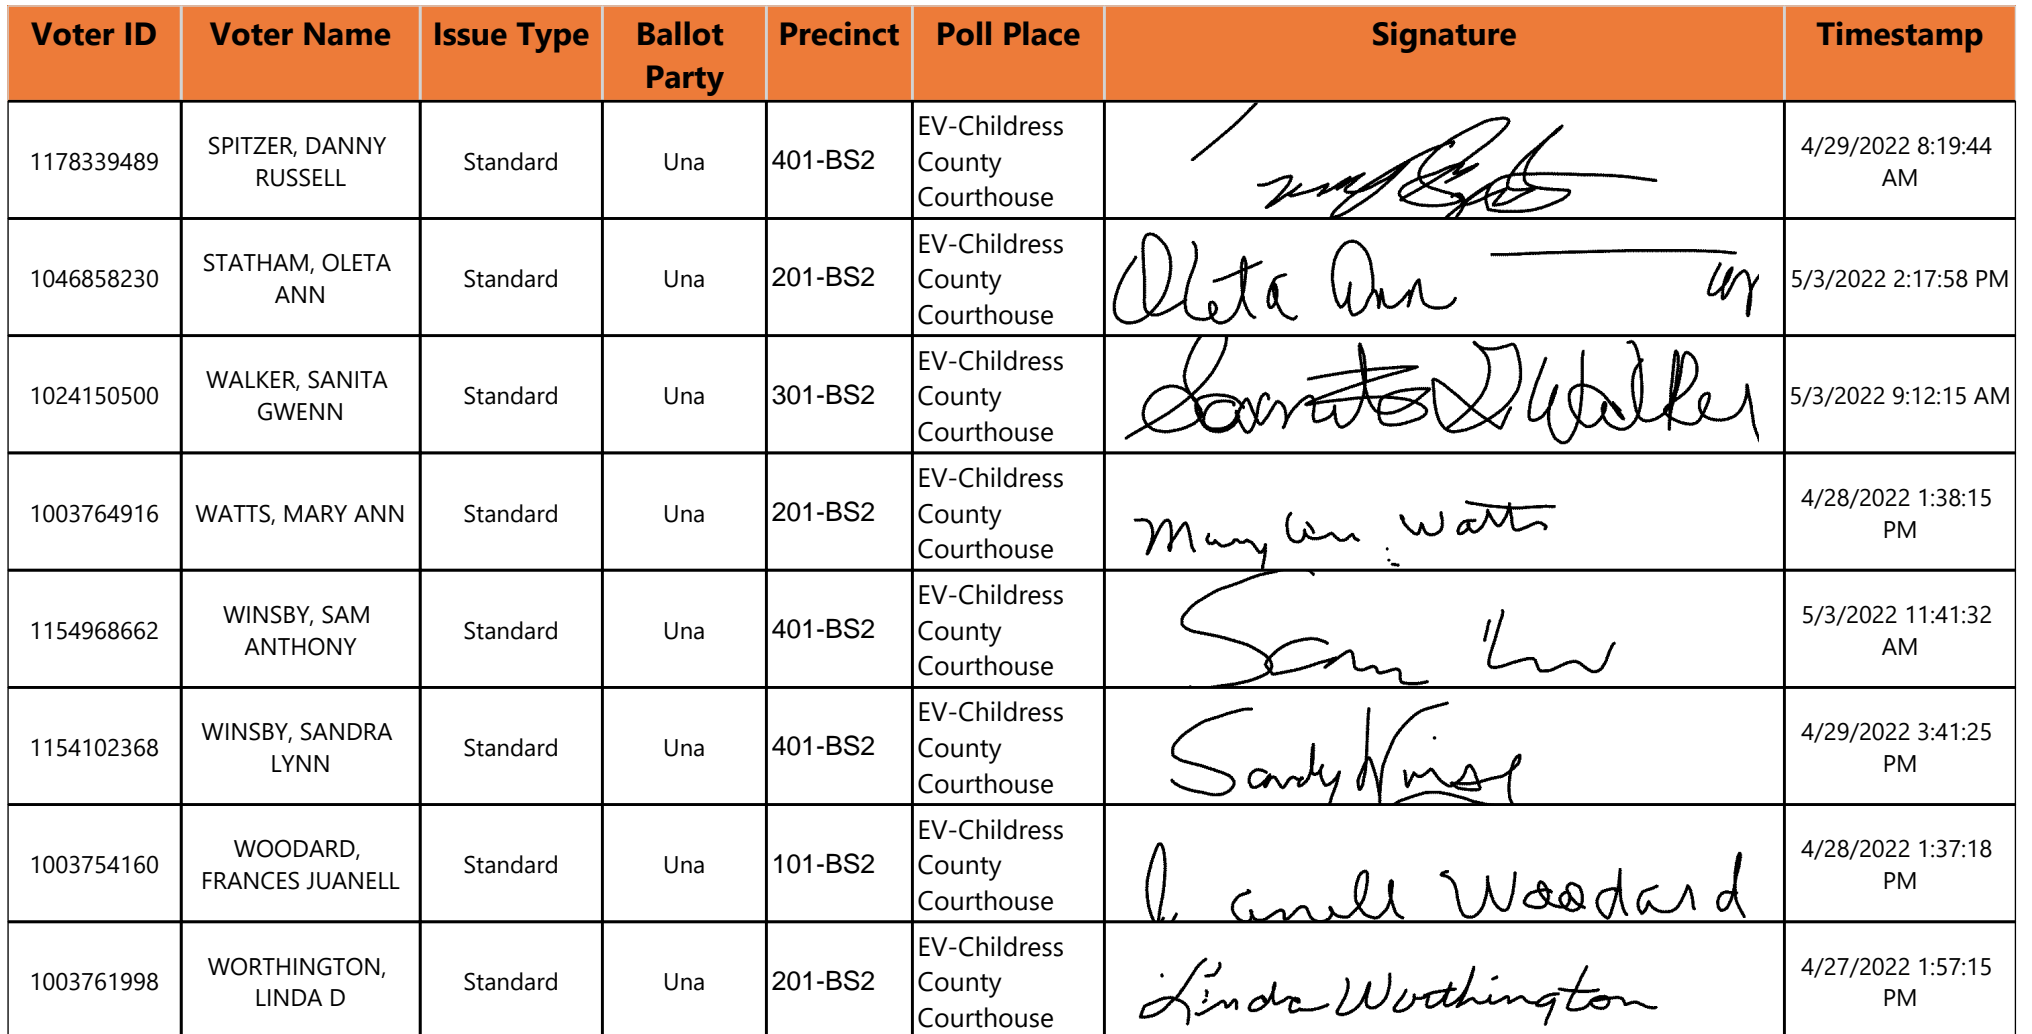 Voter ID Voter Name Issue Type Ballot Party Precinct Poll Place Signature Timestamp
1178339489 SPITZER, DANNY RUSSELL Standard Una 401-BS2 EV-Childress County Courthouse 4/29/2022 8:19:44 AM
1046858230 STATHAM, OLETA ANN Standard Una 201-BS2 EV-Childress County Courthouse Oleta Ann 5/3/2022 2:17:58 PM
1024150500 WALKER, SANITA GWENN Standard Una 301-BS2 EV-Childress County Courthouse Sanita G Walker 5/3/2022 9:12:15 AM
1003764916 WATTS, MARY ANN Standard Una 201-BS2 EV-Childress County Courthouse Mary Ann Watts 4/28/2022 1:38:15 PM
1154968662 WINSBY, SAM ANTHONY Standard Una 401-BS2 EV-Childress County Courthouse Sam 5/3/2022 11:41:32 AM
1154102368 WINSBY, SANDRA LYNN Standard Una 401-BS2 EV-Childress County Courthouse Sandy Winsby 4/29/2022 3:41:25 PM
1003754160 WOODARD, FRANCES JUANELL Standard Una 101-BS2 EV-Childress County Courthouse Woodard 4/28/2022 1:37:18 PM
1003761998 WORTHINGTON, LINDA D Standard Una 201-BS2 EV-Childress County Courthouse Linda Worthington 4/27/2022 1:57:15 PM